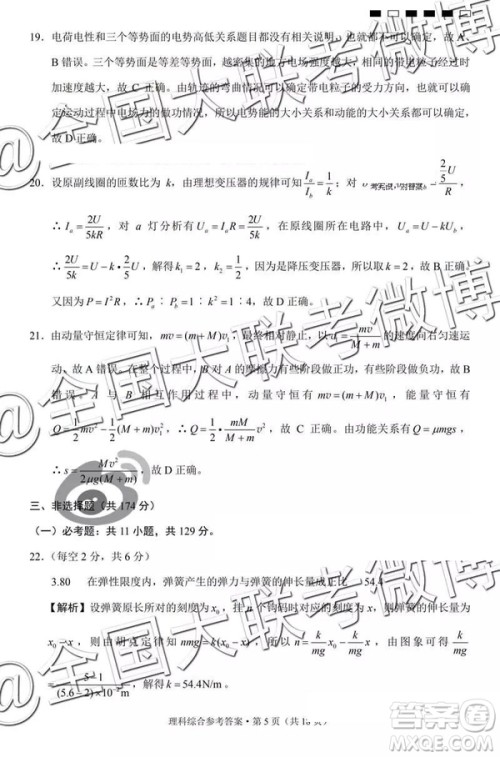 19. 电荷电性和三个等势面的电势高低关系题目都没有相关说明，
B 错误。三个等势面是等差等势面，越密集的地方电场强度越大，带电粒子受
加速度越大，故 C 正确。由轨迹的弯曲方向可以确定带电粒子的受力方向，也就可以确
定运动过程中电场力的做功情况，所以电势能的大小关系和动能的大小关系都可以确
定，故 D 正确。
20. 设原副线圈的匝数比为 k，由理想变压器的规律可知 I_a/I_b = 1/k；对
∴ I_a = 2U/5kR，对 a 灯分析有 U_a = I_a R = 2U/5k，在原线圈所在电路中，U_a = U − kU_b，
∴ 2U/5k = U − k•(2/5)U，解得 k₁ = 2，k₂ = 1/2，因为是降压变压器，所以 k = 2，故 B 正确。
又因为 P = I²R，所以 P_a ∶ P_b = 1∶k² = 1∶4，故 D 正确。
21. 由动量守恒定律可知，mv = (m + M)v₁，最终相对静止，以 mv/(M + m) 的速度向右匀速运
动，故 A 错误。在整个过程中，B 对 A 的摩擦力有些阶段做正功，有些阶段做负功，故 B
错误。A 与 B 组成的系统动量守恒有 mv = (m + M)v₁，能量守恒有
Q = ½mv² − ½(M + m)v₁²，∴ Q = ½•mM/(M + m) v²，故 C 正确。由功能关系有 Q = μmgs，
∴ s = Mv²/2μg(M + m)，故 D 正确。
三、非选择题（共 174 分）
（一）必考题：共 11 小题，共 129 分。
22.（每空 2 分，共 6 分）
3.80 在弹性限度内，弹簧产生的弹力与弹簧的伸长量成正比 54.4
【解析】设弹簧原长所对的刻度为 x₀，挂 n 个钩码时对应的刻度为 x，弹簧的伸长量为
x₀ − x，由胡克定律知 nmg = k(x₀ − x)，所以 n = (k/mg)x₀ − (k/mg)x，由图象可得 k/mg
= (5 − 1)/((5.6 − 2)×10⁻²)m，解得 k = 54.4N/m。
理科综合参考答案・第 5 页（共 1
@全国大联考微博
@全国大联考微博
答案圈